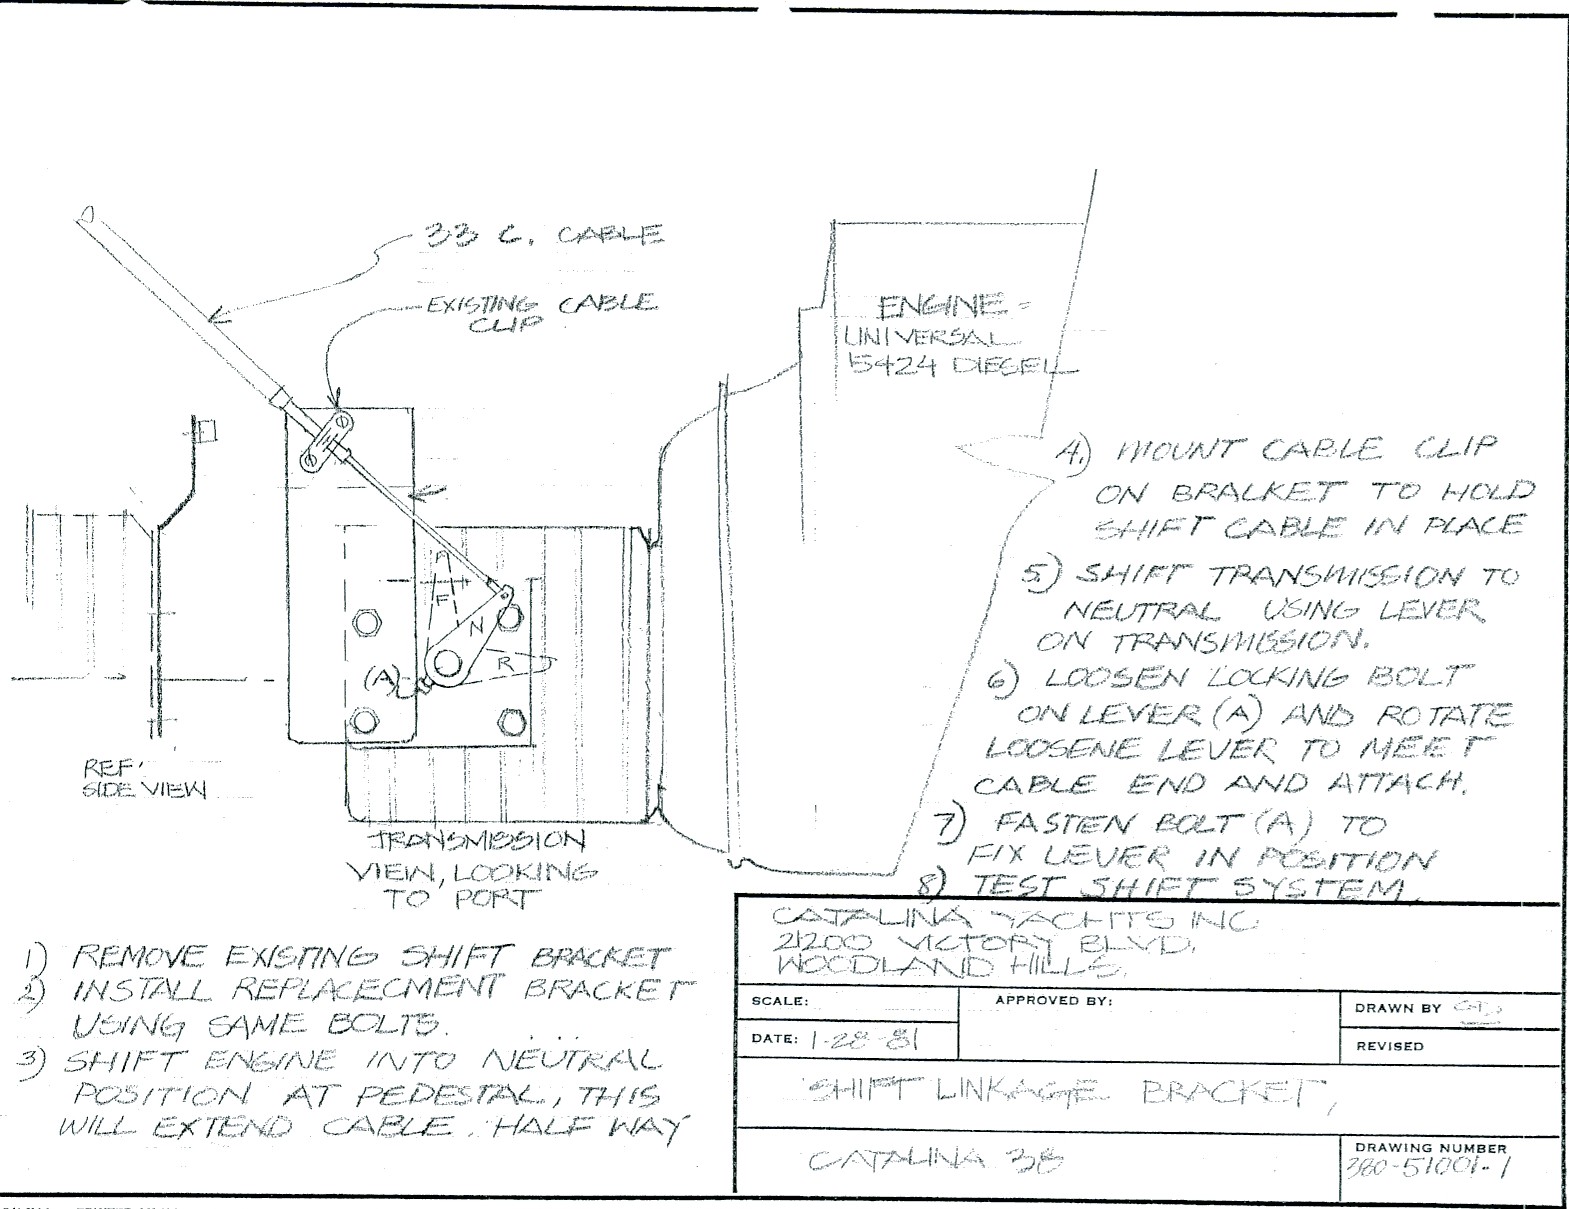 33 C. CABLE
EXISTING CABLE
CLIP
ENGINE =
UNIVERSAL
5424 DIESEL
F
N
R
(A)
REF.
SIDE VIEW
TRANSMISSION
VIEW, LOOKING
TO PORT
1) REMOVE EXISTING SHIFT BRACKET
2) INSTALL REPLACECMENT BRACKET
USING SAME BOLTS.
3) SHIFT ENGINE INTO NEUTRAL
POSITION AT PEDESTAL, THIS
WILL EXTEND CABLE. HALF WAY
4.) MOUNT CABLE CLIP
ON BRACKET TO HOLD
SHIFT CABLE IN PLACE
5.) SHIFT TRANSMISSION TO
NEUTRAL USING LEVER
ON TRANSMISSION.
6) LOOSEN LOCKING BOLT
ON LEVER (A) AND ROTATE
LOOSENE LEVER TO MEET
CABLE END AND ATTACH.
7) FASTEN BOLT (A) TO
FIX LEVER IN POSITION
8) TEST SHIFT SYSTEM.
CATALINA YACHTS INC
21200 VICTORY BLVD.
WOODLAND HILLS.
SCALE:
APPROVED BY:
DRAWN BY
DATE: 1-28-81
REVISED
SHIFT LINKAGE BRACKET,
CATALINA 38
DRAWING NUMBER
380-51001-1